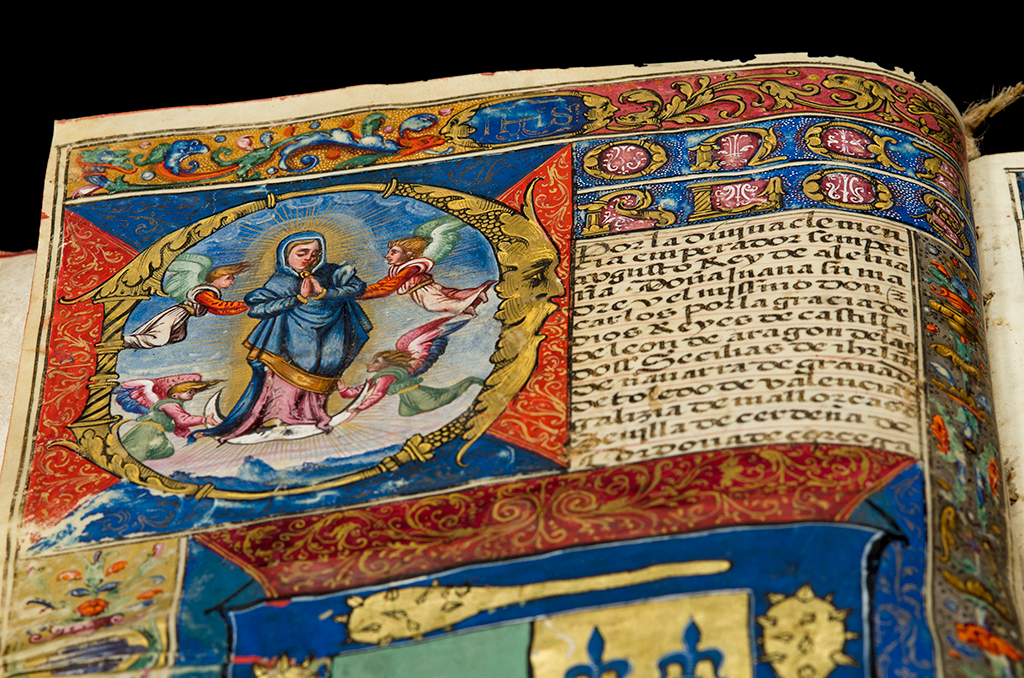 Ihus
Por la diuina clemen
tia emperador semper
augusto Rey de alema
nia Doña Juana su ma
dre y el mismo don
carlos por la gracia de
dios Reyes de castilla
de leon de aragon de las
dos Secilias de ihrlm
de nauarra de granada
de toledo de valencia
galizia de mallorcas
seuilla de cerdeña de
cordoua de corcega